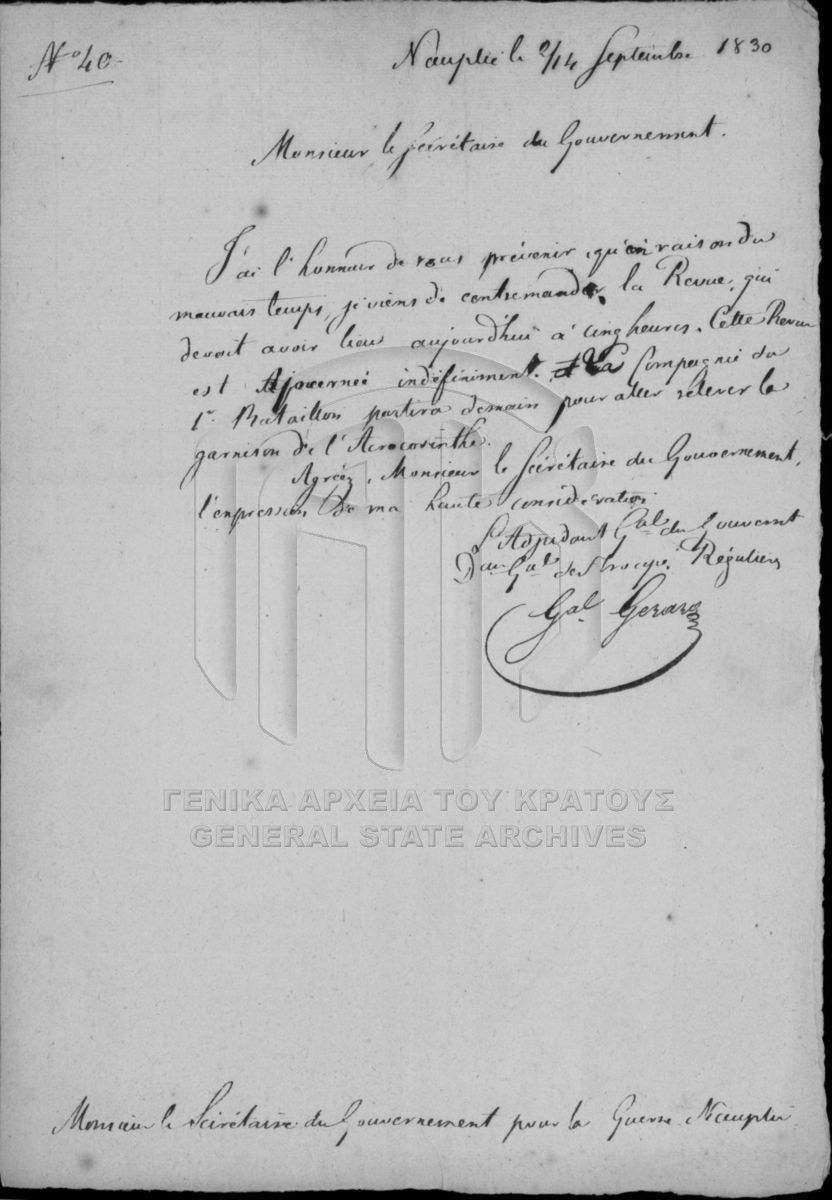 N° 40
Nauplie le 2/14 Septembre 1830
Monsieur le Secrétaire du Gouvernement.
J'ai l'honneur de vous prévenir, qu'en raison du
mauvais temps, je viens de contremander la Revue, qui
devoit avoir lieu aujourd'hui à cinq heures. Cette Revue
est Ajournée indéfiniment. La Compagnie du
1r Bataillon partira demain pour aller relever la
garnison de l'Acrocorinthe.
Agréez, Monsieur le Secrétaire du Gouvernement,
l'expression de ma haute considération
L'Adjudant Gal du Gouvernt
Gal des troupes Réguliers
Gal Gerard
ΓΕΝΙΚΑ ΑΡΧΕΙΑ ΤΟΥ ΚΡΑΤΟΥΣ
GENERAL STATE ARCHIVES
Monsieur le Secrétaire du Gouvernement pour la Guerre Nauplie